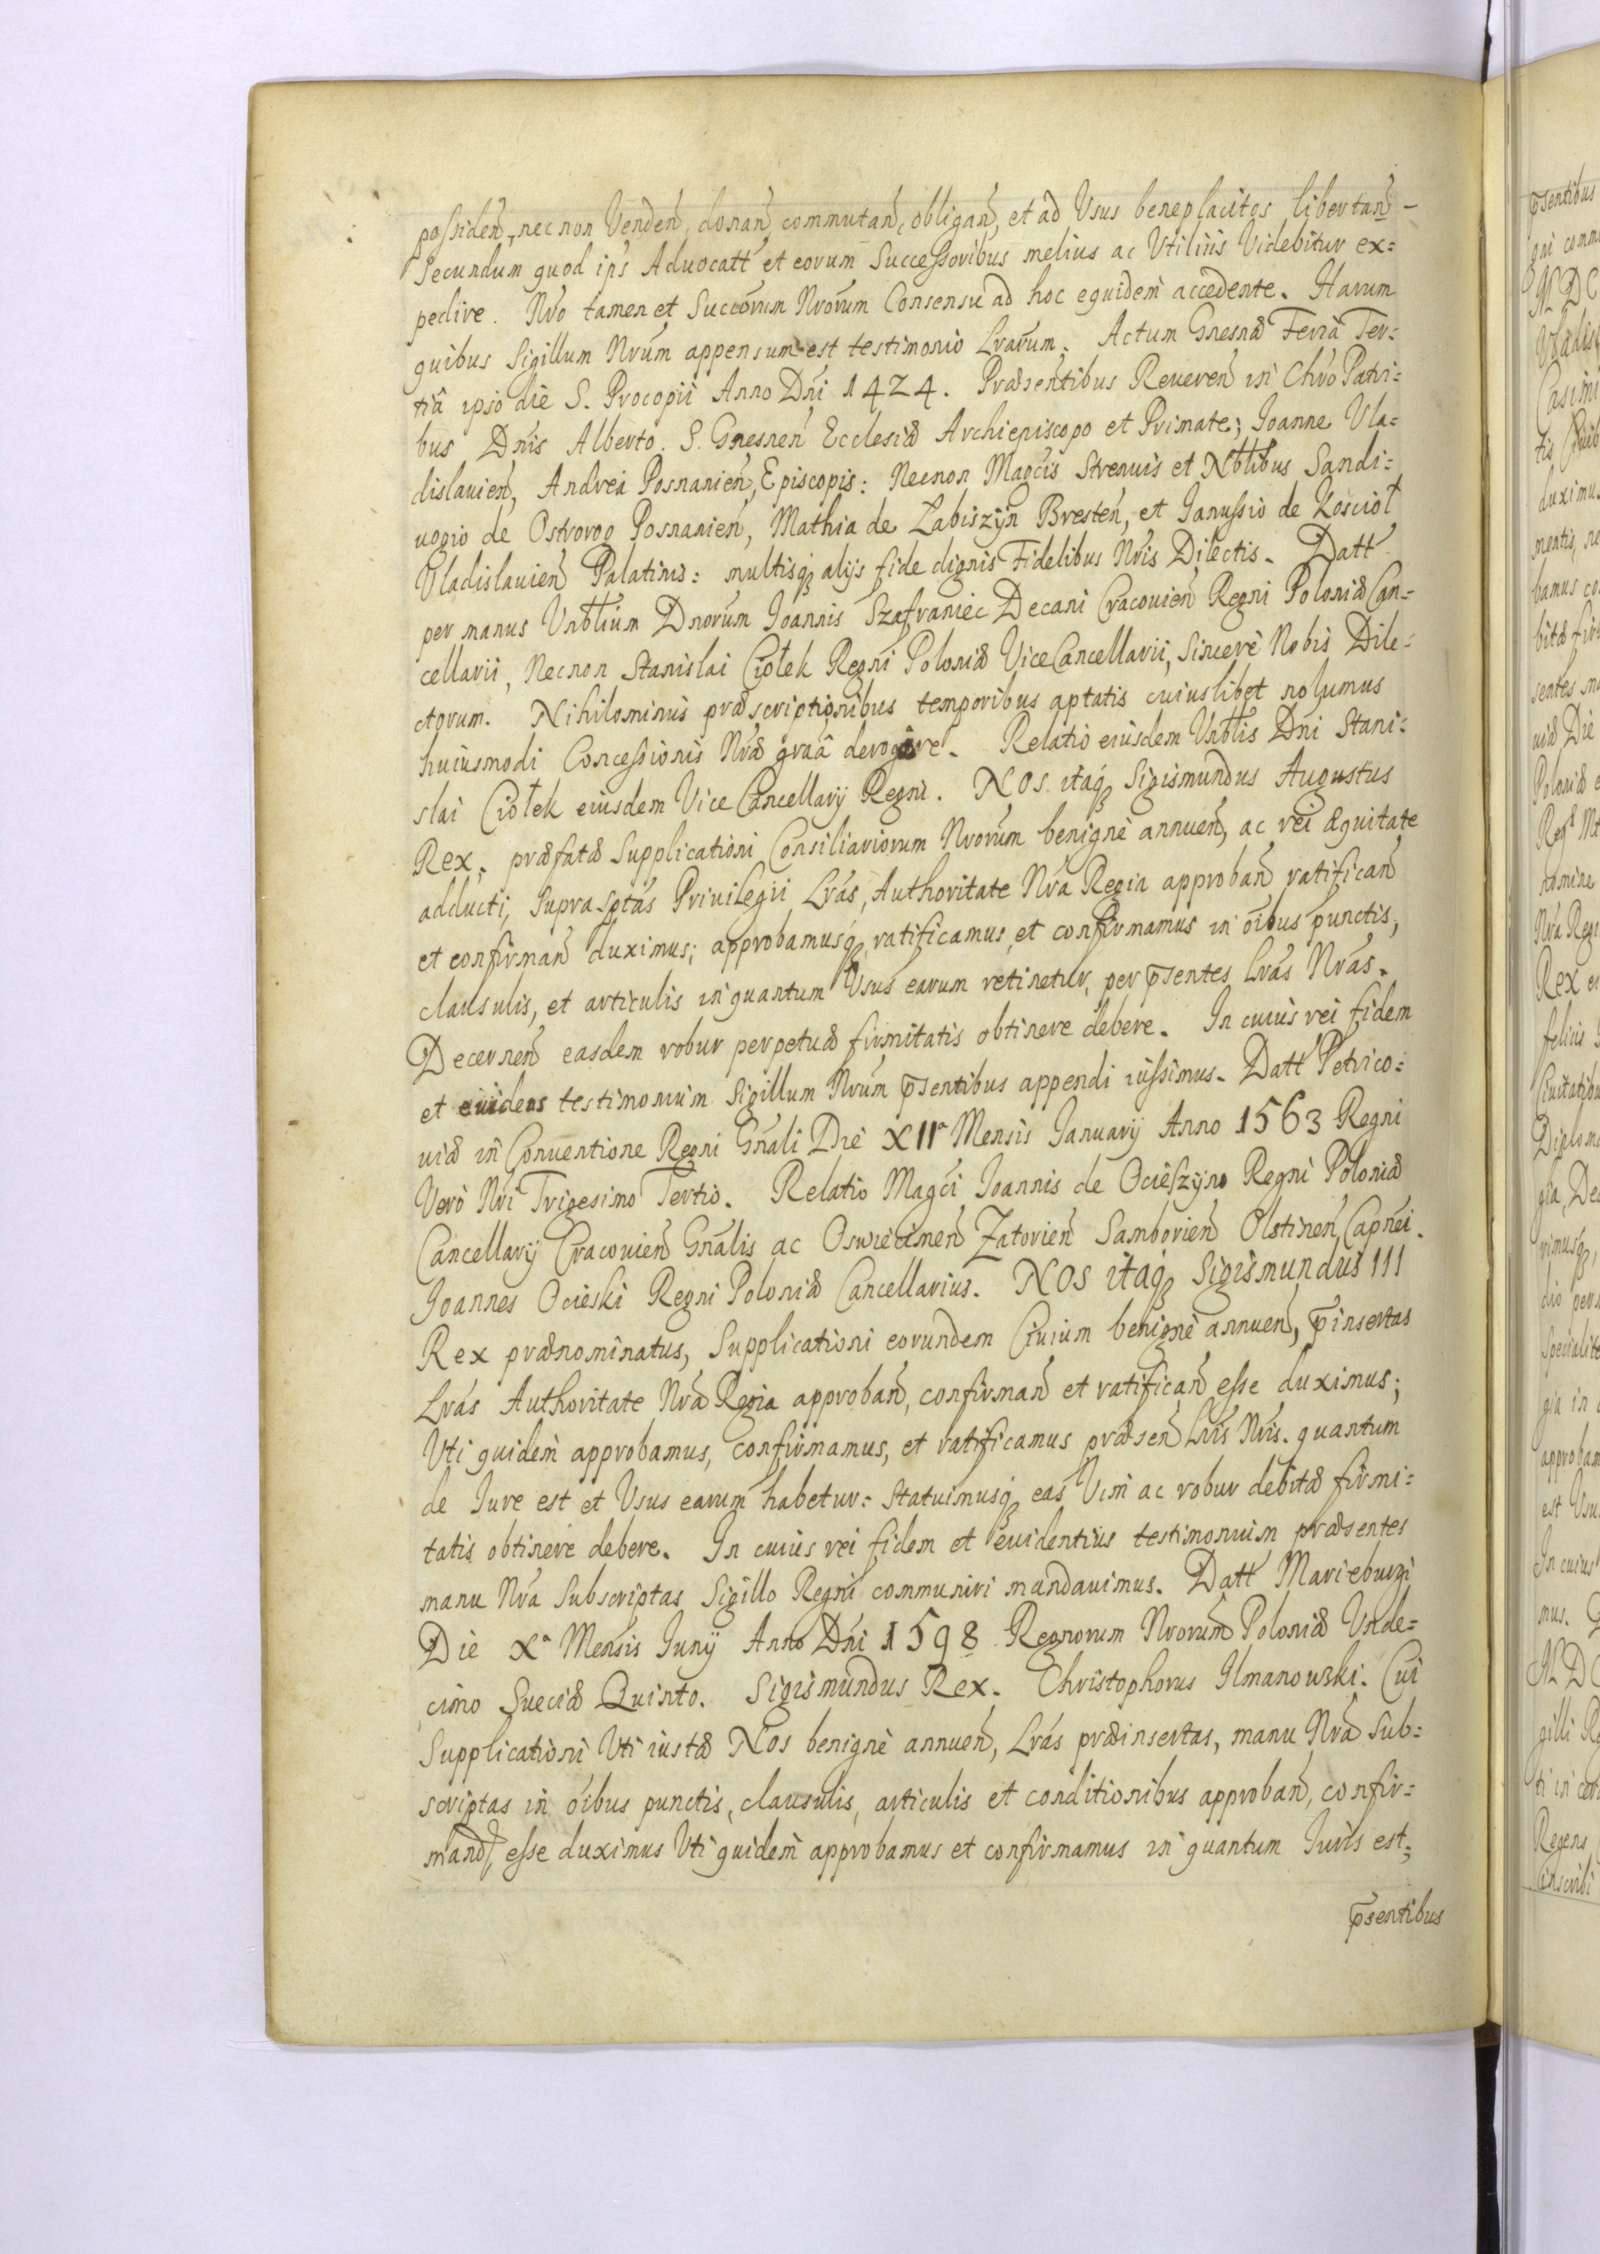 possiden̄, nec non Venden̄, donan̄, commutan̄, obligan̄, et ad Vsus beneplacitos libertan̄ -
secundum quod ip̄s Aduocatt̄ et eorum Successoribus melius ac Vtilius Videbitur ex=
pedire. Nr̄o tamen et Succor̄um Nror̄um Consensu ad hoc equidem accedente. Harum
quibus Sigillum Nrūm appensum est testimonio Lrar̄um. Actum Gnesnæ Feria Ter=
tiâ ipso die S. Procopii Anno Dn̄i 1424. Præsentibus Reueren̄ in Chrō Patri=
bus Dn̄is Alberto. S. Gnesnen̄ Ecclesiæ Archiepiscopo et Primate; Joanne Vla=
dislauien̄, Andrea Posnanien̄, Episcopis: Necnon Magc̄is Strenuis et Nbtlibus Sandi=
uogio de Ostrorog Posnanien̄, Mathia de Łabiszÿn Bresten̄, et Janussio de Kosciół
Vladislauien̄ Palatinis: multisq3 alijs fide dignis Fidelibus Nr̄is Dilectis. Datt̄
per manus Vnbtlium Dnor̄um Joannis Szafraniec Decani Cracouien̄ Regni Poloniæ Can=
cellarii, Necnon Stanislai Ciołek Regni Poloniæ ViceCancellarii, Sincerè Nobis Dile=
ctorum. Nihilominus præscriptionibus temporibus aptatis cuiuslibet nolumus
huiusmodi Concessionis Nr̄æ graâ derogare. Relatio eiusdem Vnbtlis Dn̄i Stani=
slai Ciołek eiusdem Vice Cancellarÿ Regni. NOS itaq3 Sigismundus Augustus
Rex, præfatæ Supplicationi Consiliariorum Nror̄um benignè annuen̄, ac rei æquitate
adducti, Supra Sptas Priuilegii Lrās, Authoritate Nr̄a Regia approban̄ ratifican̄
et confirman̄ duximus; approbamusq3, ratificamus, et confirmamus in oībus punctis,
clausulis, et articulis in quantum Vsus earum retinetur, per p̄sentes Lrās Nrās.
Decernen̄ easdem robur perpetuæ firmitatis obtinere debere. In cuius rei fidem
et euidens testimonium Sigillum Nrūm p̄sentibus appendi iussimus. Datt̄ Petrico=
uiæ in Conuentione Regni Gn̄ali Die XIIª Mensis Januarÿ Anno 1563 Regni
Verò Nri Trigesimo Tertio. Relatio Magc̄i Joannis de Ocieszÿno Regni Poloniæ
Cancellarÿ Cracouien̄ Gn̄alis ac Oswiecimen̄ Zatorien̄ Samborien̄ Olstinen̄ Capnei.
Joannes Ocieski Regni Poloniæ Cancellarius. NOS itaq3 Sigismundus III
Rex prænominatus, Supplicationi eorundem Ciuium benignè annuen̄, p̄insertas
Lrās Authoritate Nr̄a Regia approban̄, confirman̄ et ratifican̄ esse duximus;
Vti quidem approbamus, confirmamus, et ratificamus præsen̄ Lrīs Nrīs. quantum
de Jure est et Vsus earum habetur: Statuimusq3 eas Vim ac robur debitæ firmi=
tatis obtinere debere. In cuius rei fidem et euidentius testimonium præsentes
manu Nr̄a Subscriptas Sigillo Regni communiri mandauimus. Datt̄ Marieburgi
Die Xª Mensis Junÿ Anno Dn̄i 1598 Regnorum Nror̄um Poloniæ Vnde=
cimo Sueciæ Quinto. Sigismundus Rex. Christophorus Ilmanowski. Cui
Supplicationi Vti iustæ Nos benignè annuen̄, Lrās præinsertas, manu Nr̄a Sub=
scriptas in oībus punctis, clausulis, articulis et conditionibus approban̄, confir=
mand, esse duximus Vti quidem approbamus et confirmamus in quantum Juris est;
p̄sentibus